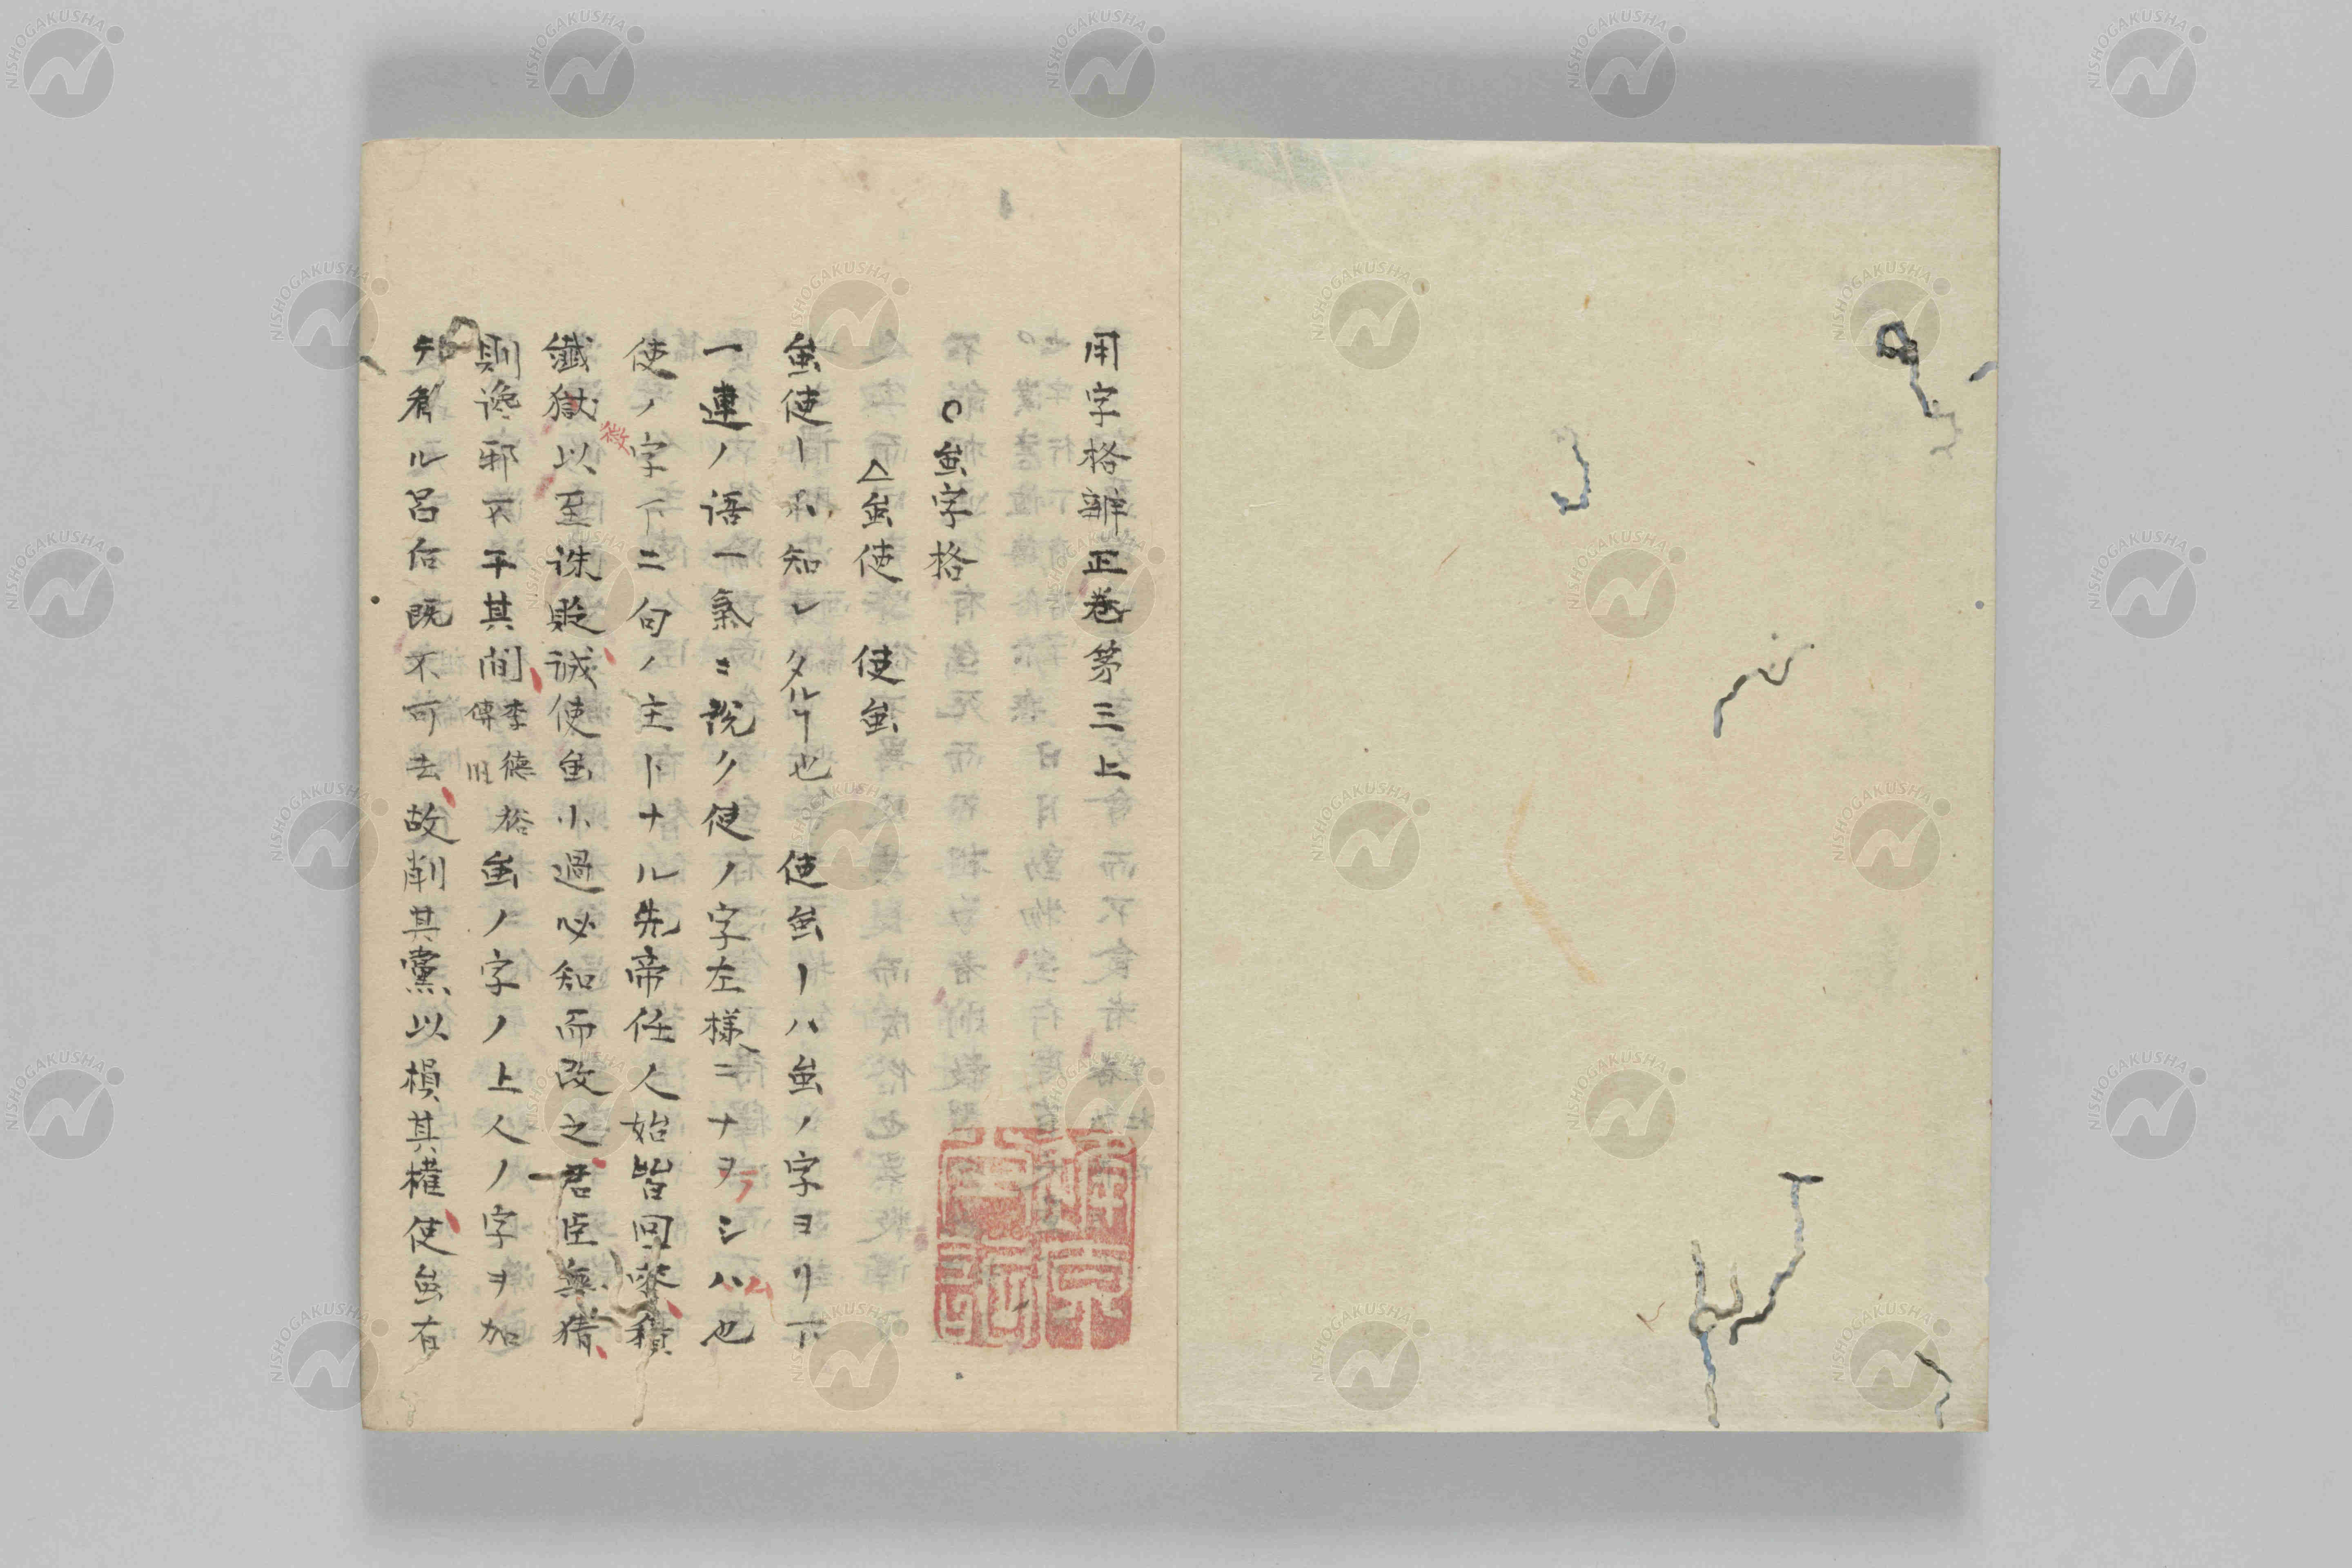 用字格辨正卷第三上
○虽字格
△虽使 使虽
虽使ーハ知レタルヿ也 使虽ーハ虽ノ字ヨリ下
一連ノ語一氣ニ說ク使ノ字左樣ニナヲシハ也
ラ
ム
使ノ字下二句ノ主トナル先帝任人始皆回 積
微
纎獄以至誅貶誠使虽小過必知而改之君臣無猜
則讒邪不干其間李德裕傳 虽ノ字ノ上人ノ字ヲ加
ル呂后既不可去故削其黨以損其權使虽有
NISHOGAKUSHA